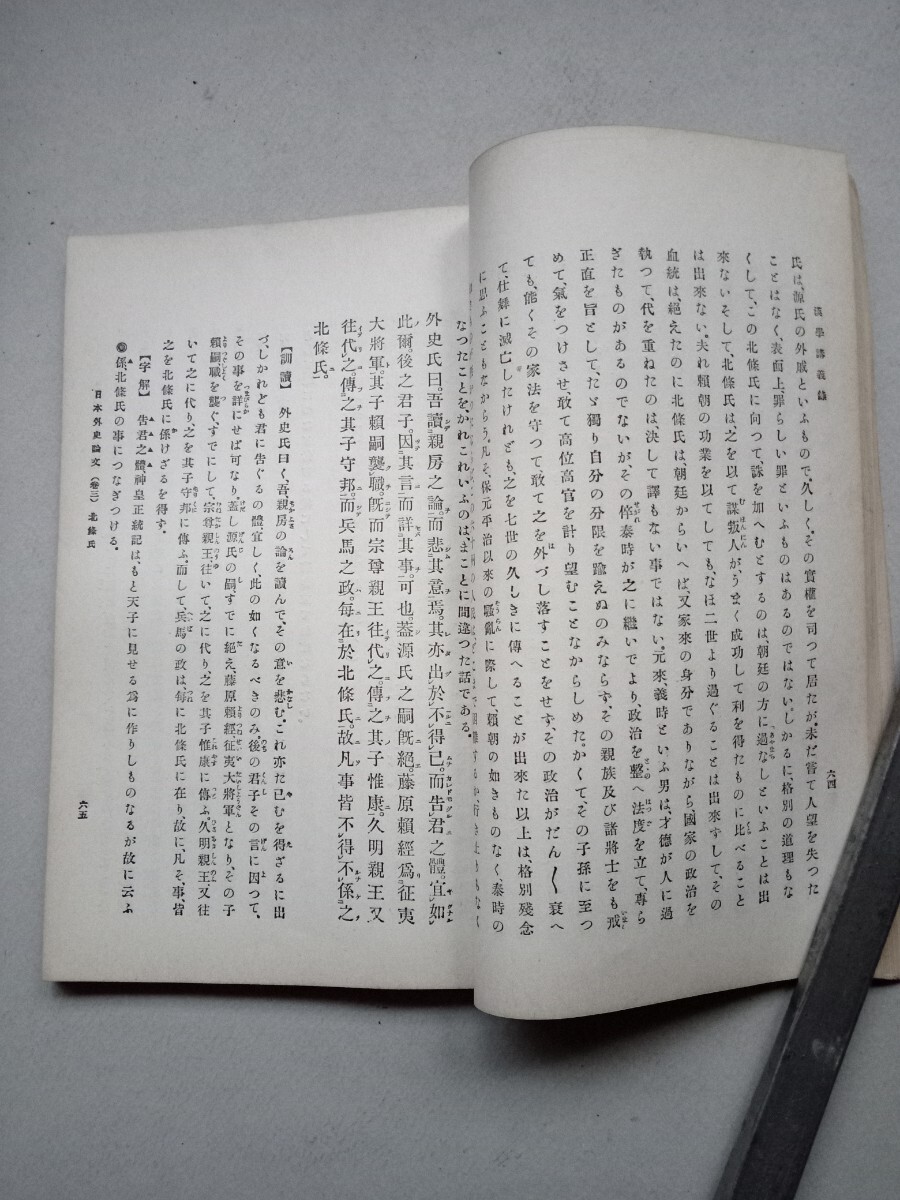 漢學講義錄
六四
氏は、源氏の外戚といふもので、久しく、その實權を司つて居たが、未だ嘗て人望を失つた
ことはなく、表面上罪らしい罪といふものはあるのではない。しかるに、格別の道理もな
くして、この北條氏に向つて、誅を加へむとするのは、朝廷の方に過なしといふことは出
來ない。そして、北條氏は、之を以て謀叛人がうまく成功して利を得たものに比べること
は出來ない。夫れ賴朝の功業を以てしても、なほ二世より過ぐることは出來ずして、その
血統は、絕えたのに北條氏は朝廷からいへば、又家來の身分でありながら國家の政治を
執つて、代を重ねたのは、決して譯もない事ではない。元來、義時といふ男は、才德が人に過
ぎたものがあるのでないが、その倅泰時が之に繼いでより、政治を整へ法度を立て、專ら
正直を旨として、たゞ獨り自分の分限を踰えぬのみならず、その親族及び諸將士をも戒
めて、氣をつけさせ、敢て高位高官を計り望むことなからしめた。かくて、その子孫に至つ
ても、能くその家法を守つて敢て之を外づし落すことをせず、その政治がだん〱衰へ
て、仕舞に滅亡したけれども、之を七世の久しきに傳へることが出來た以上は、格別殘念
に思ふこともなからう。凡そ、保元平治以來の騷亂に際して、賴朝の如きものなく、泰時の
なつたことをかれこれいふのは、まことに間違つた話である。
外史氏曰。吾讀親房之論。而悲其意焉。其亦出於不得已。而吿君之體。宜如
此爾。後之君子。因其言而詳其事。可也。蓋源氏之嗣既絕。藤原賴經爲征夷
大將軍。其子賴嗣襲職。既而宗尊親王往代之。傳之其子惟康。久明親王又
往代之。傳之其子守邦。而兵馬之政。每在於北條氏。故凡事皆不得不係之
北條氏。
【訓讀】 外史氏曰く、吾親房の論を讀んで、その意を悲む。これ亦た已むを得ざるに出
づ、しかれども君に吿ぐるの體宜しく、此の如くなるべきのみ、後の君子その言に因つて、
その事を詳にせば可なり。蓋し源氏の嗣、すでに絕え、藤原賴經征夷大將軍となり、その子
賴嗣職を襲ぐ、すでにして、宗尊親王、往いて、之に代り、之を其子惟康に傳ふ、久明親王又往
いて之に代り、之を其子守邦に傳ふ、而して、兵馬の政は、每に北條氏に在り、故に、凡そ、事、皆
之を北條氏に係けざるを得ず。
【字解】 吿君之體、神皇正統記は、もと天子に見せる爲に作りしものなるが故に云ふ
係、北條氏の事につなぎつける。
日本外史論文(卷三) 北條氏
六五